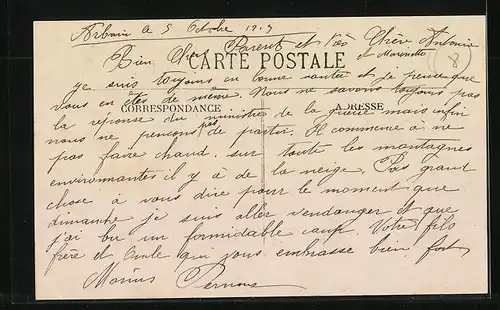 Arbois le 5 Octobre 1919
Bien Chers Parents et Très Chère Antonia
et Marinette
CARTE POSTALE
8
je suis toujours en bonne santée et je pense que
vous en êtes de même. Nous ne savons toujours pas
CORRESPONDANCE
ADRESSE
la réponse du ministre de la guerre mais enfin
nous ne pensons pas de partir. Il commence à ne
pas faire chaud. sur toute les montagnes
environnantes il y à de la neige. Pas grand
chose à vous dire pour le moment que
dimanche je suis aller vendanger et que
j'ai bu un formidable coup. Votre fils
frère et Oncle qui vous embrasse bien fort
Marius